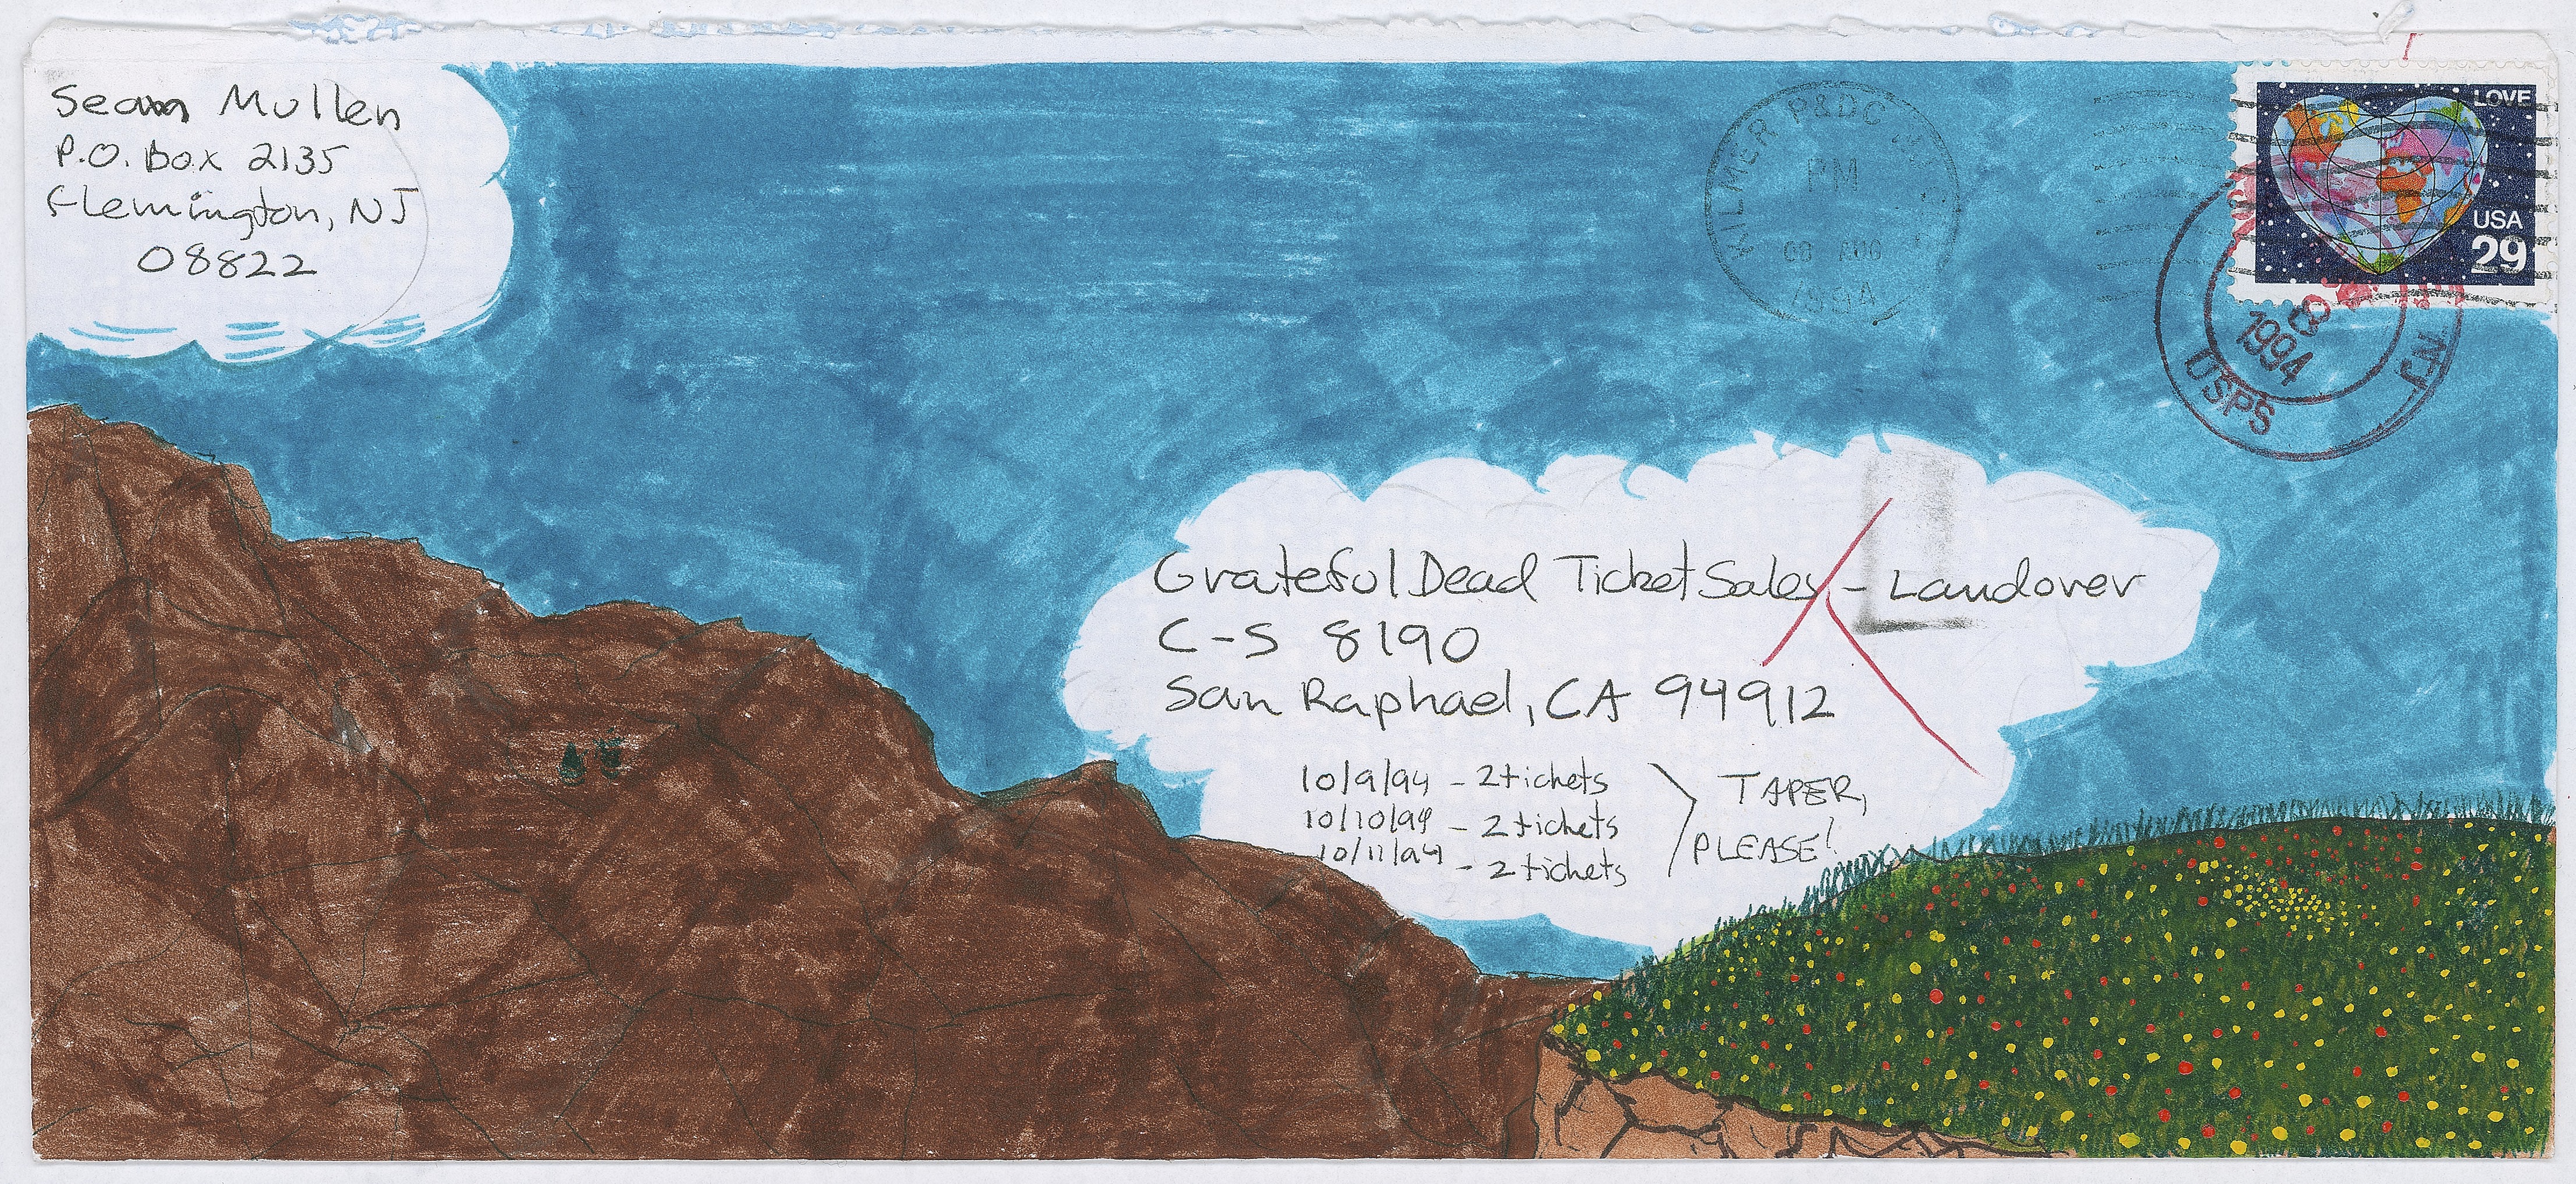 Sean Mullen
P.O. Box 2135
Flemington, NJ
08822
KILMER P&DC
PM
08 AUG
1994
LOVE
USA
29
8
1994
USPS
NJ
Grateful Dead Ticket Sales - Landover
C-S 8190
San Raphael, CA 94912
10/9/94 - 2 tickets
10/10/94 - 2 tickets
10/11/94 - 2 tickets
TAPER,
PLEASE!